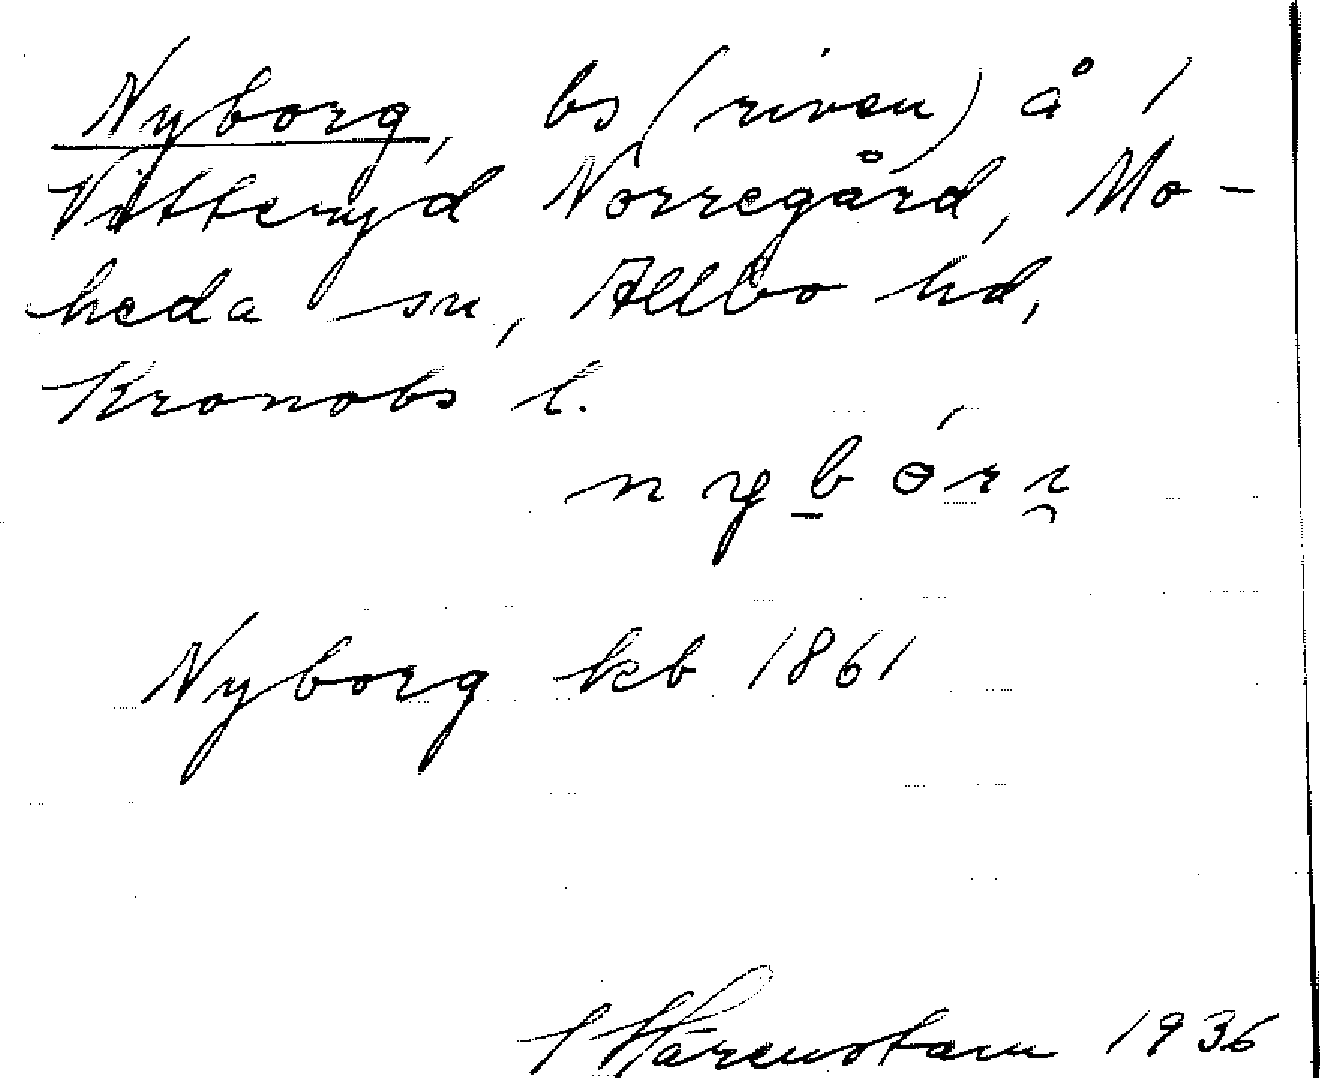 Nyborg, bs (riven) å 1
Vitteryd Norregård, Mo-
heda sn, Allbo hd,
Kronobs l.
Nyborg kb 1861
Härenstam 1936